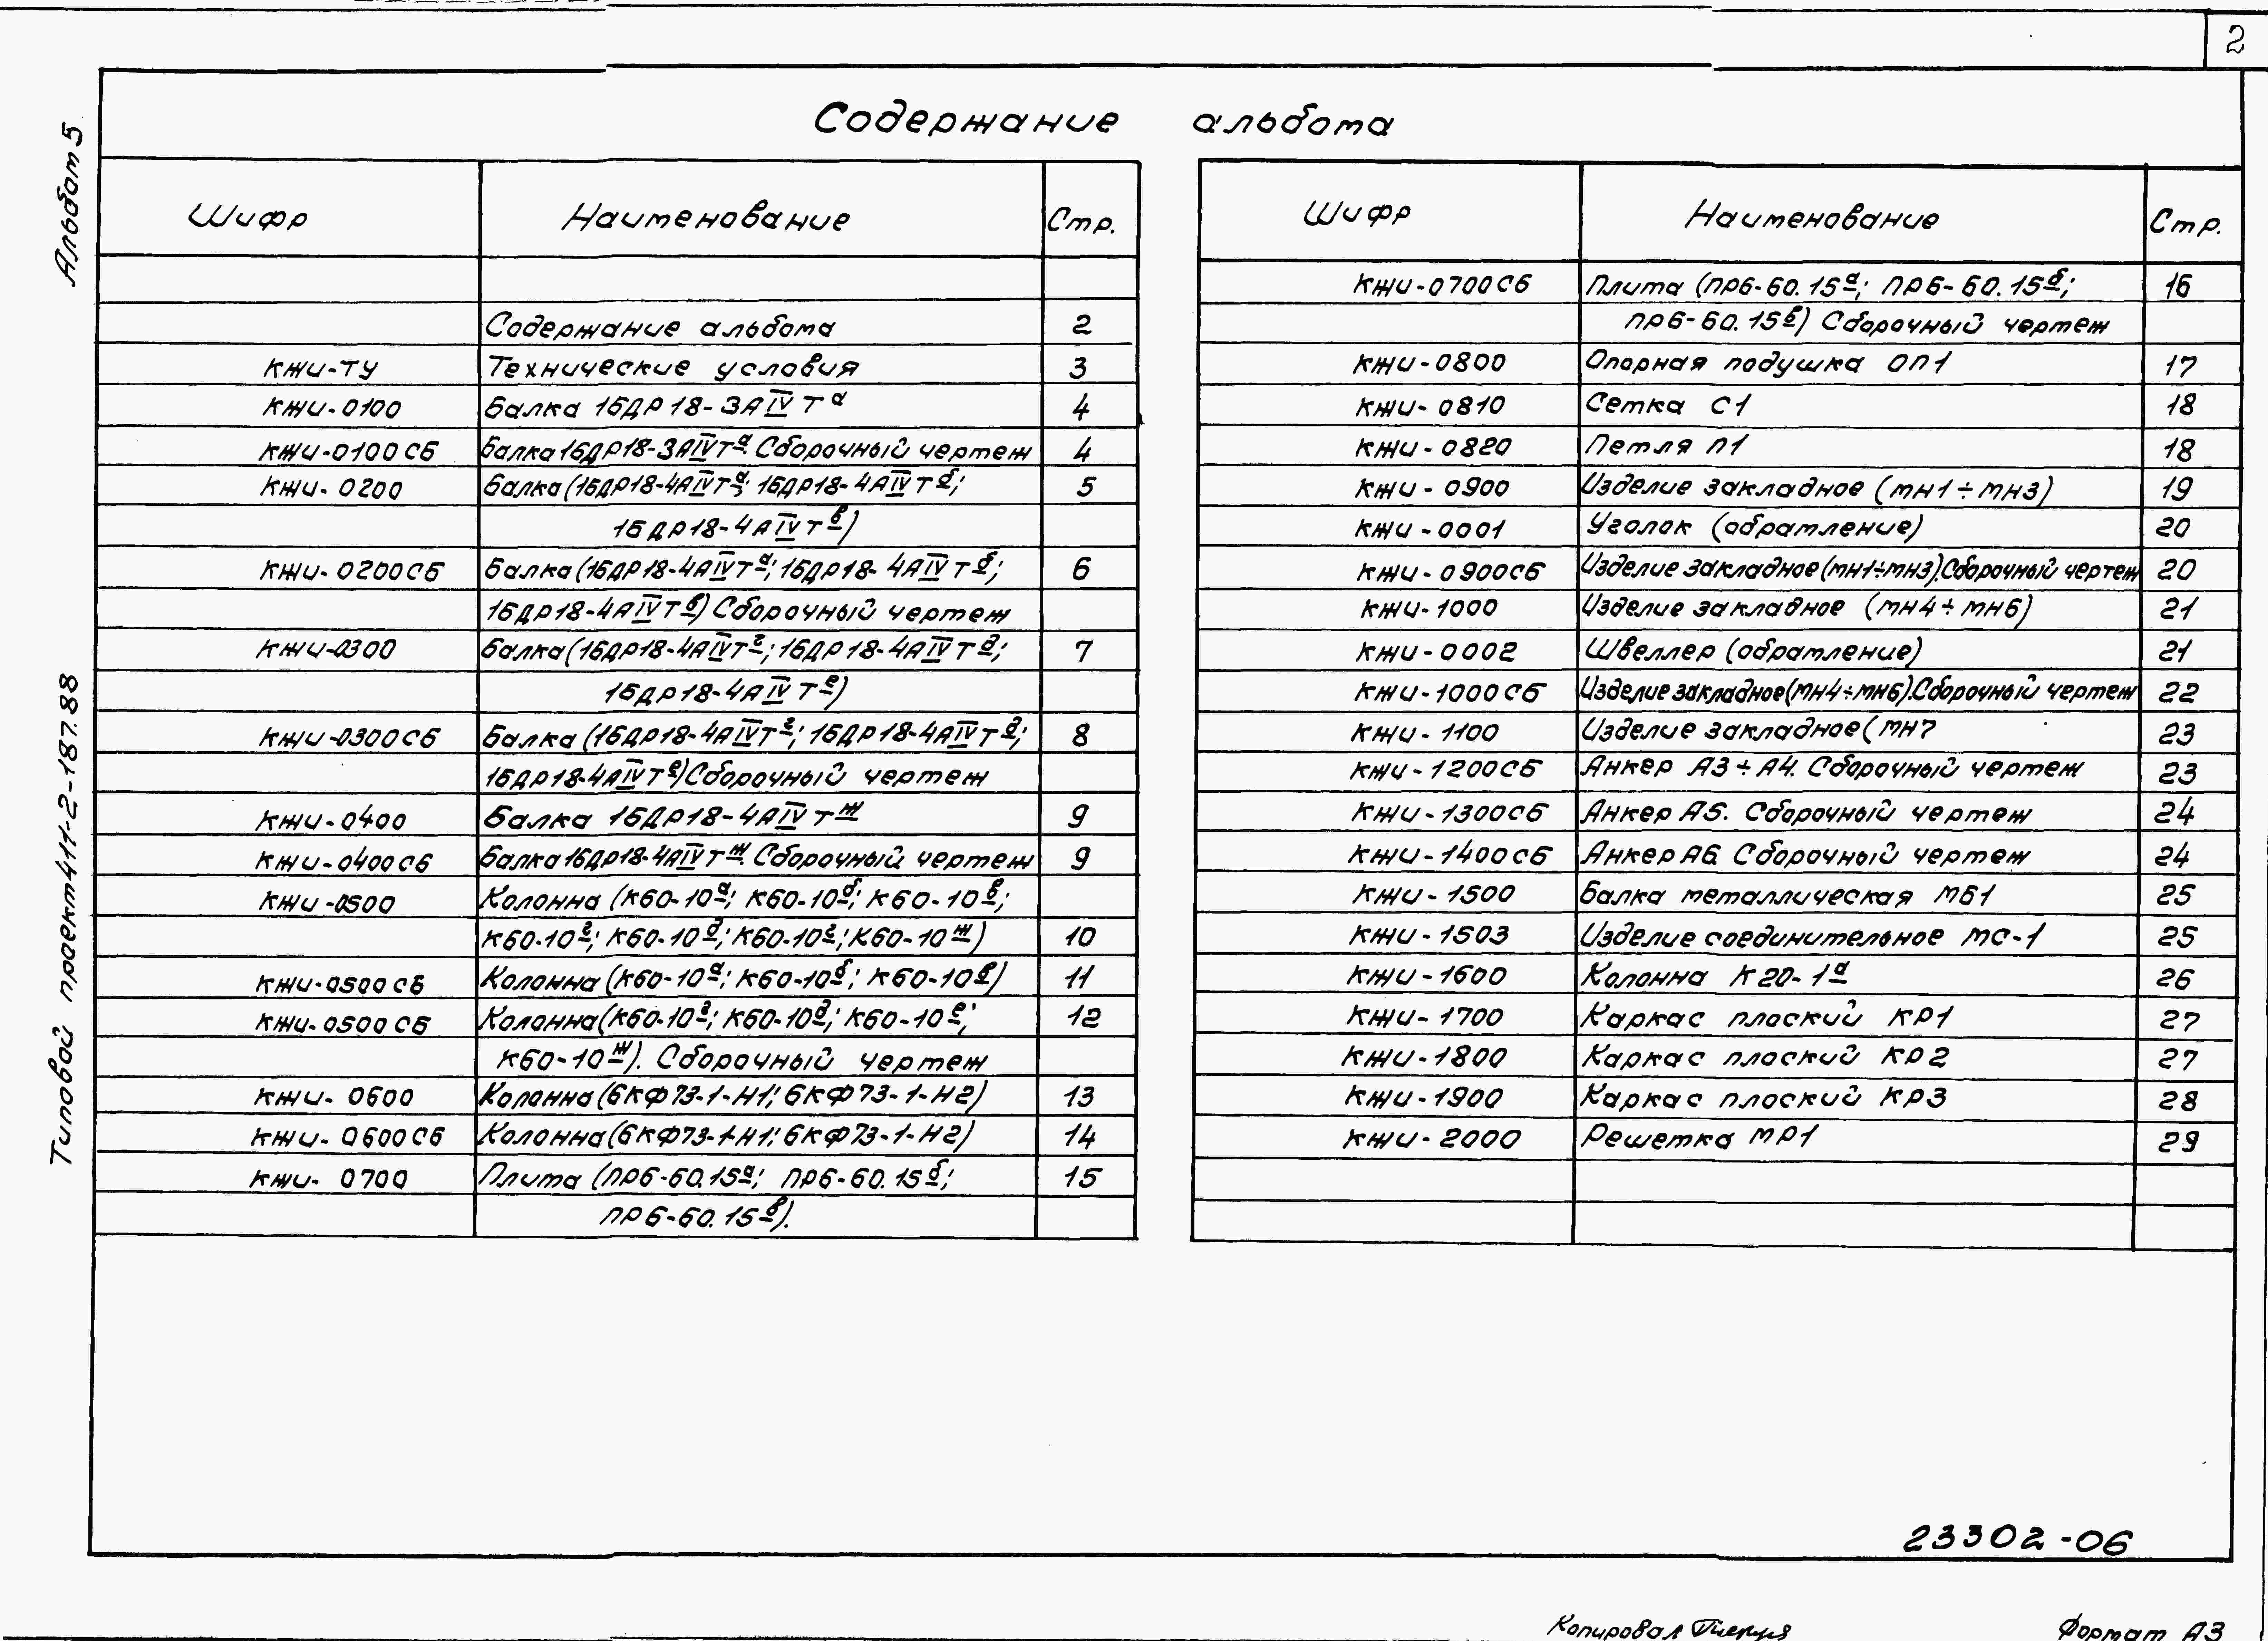 2
Содержание альбома
Альбом 5
Типовой проект 411-2-187.88
Шифр Наименование Стр.
Содержание альбома 2
КЖИ-ТУ Технические условия 3
КЖИ-0100 Балка 1БДР18-3АIVТа 4
КЖИ-0100СБ Балка 1БДР18-3АIVТа. Сборочный чертеж 4
КЖИ-0200 Балка (1БДР18-4АIVТа; 1БДР18-4АIVТб; 5
1БДР18-4АIVТв)
КЖИ-0200СБ Балка (1БДР18-4АIVТа; 1БДР18-4АIVТб; 6
1БДР18-4АIVТв) Сборочный чертеж
КЖИ-0300 Балка (1БДР18-4АIVТг; 1БДР18-4АIVТд; 7
1БДР18-4АIVТе)
КЖИ-0300СБ Балка (1БДР18-4АIVТг; 1БДР18-4АIVТд; 8
1БДР18-4АIVТе) Сборочный чертеж
КЖИ-0400 Балка 1БДР18-4АIVТж 9
КЖИ-0400СБ Балка 1БДР18-4АIVТж. Сборочный чертеж 9
КЖИ-0500 Колонна (К60-10а; К60-10б; К60-10в;
К60-10г; К60-10д; К60-10г; К60-10ж) 10
КЖИ-0500СБ Колонна (К60-10а; К60-10б; К60-10в) 11
КЖИ-0500СБ Колонна (К60-10г; К60-10д; К60-10е; 12
К60-10ж). Сборочный чертеж
КЖИ-0600 Колонна (6КФ73-1-Н1; 6КФ73-1-Н2) 13
КЖИ-0600СБ Колонна (6КФ73-1-Н1; 6КФ73-1-Н2) 14
КЖИ-0700 Плита (ПР6-60.15а; ПР6-60.15б; 15
ПР6-60.15в).
Шифр Наименование Стр.
КЖИ-0700СБ Плита (ПР6-60.15а; ПР6-60.15б; 16
ПР6-60.15в) Сборочный чертеж
КЖИ-0800 Опорная подушка ОП1 17
КЖИ-0810 Сетка С1 18
КЖИ-0820 Петля П1 18
КЖИ-0900 Изделие закладное (МН1÷МН3) 19
КЖИ-0001 Уголок (обрамление) 20
КЖИ-0900СБ Изделие закладное (МН1÷МН3). Сборочный чертеж 20
КЖИ-1000 Изделие закладное (МН4÷МН6) 21
КЖИ-0002 Швеллер (обрамление) 21
КЖИ-1000СБ Изделие закладное (МН4÷МН6). Сборочный чертеж 22
КЖИ-1100 Изделие закладное (МН7 23
КЖИ-1200СБ Анкер А3÷А4. Сборочный чертеж 23
КЖИ-1300СБ Анкер А5. Сборочный чертеж 24
КЖИ-1400СБ Анкер А6. Сборочный чертеж 24
КЖИ-1500 Балка металлическая МБ1 25
КЖИ-1503 Изделие соединительное МС-1 25
КЖИ-1600 Колонна К20-1а 26
КЖИ-1700 Каркас плоский КР1 27
КЖИ-1800 Каркас плоский КР2 27
КЖИ-1900 Каркас плоский КР3 28
КЖИ-2000 Решетка МР1 29
23302-06
Копировал
Формат А3